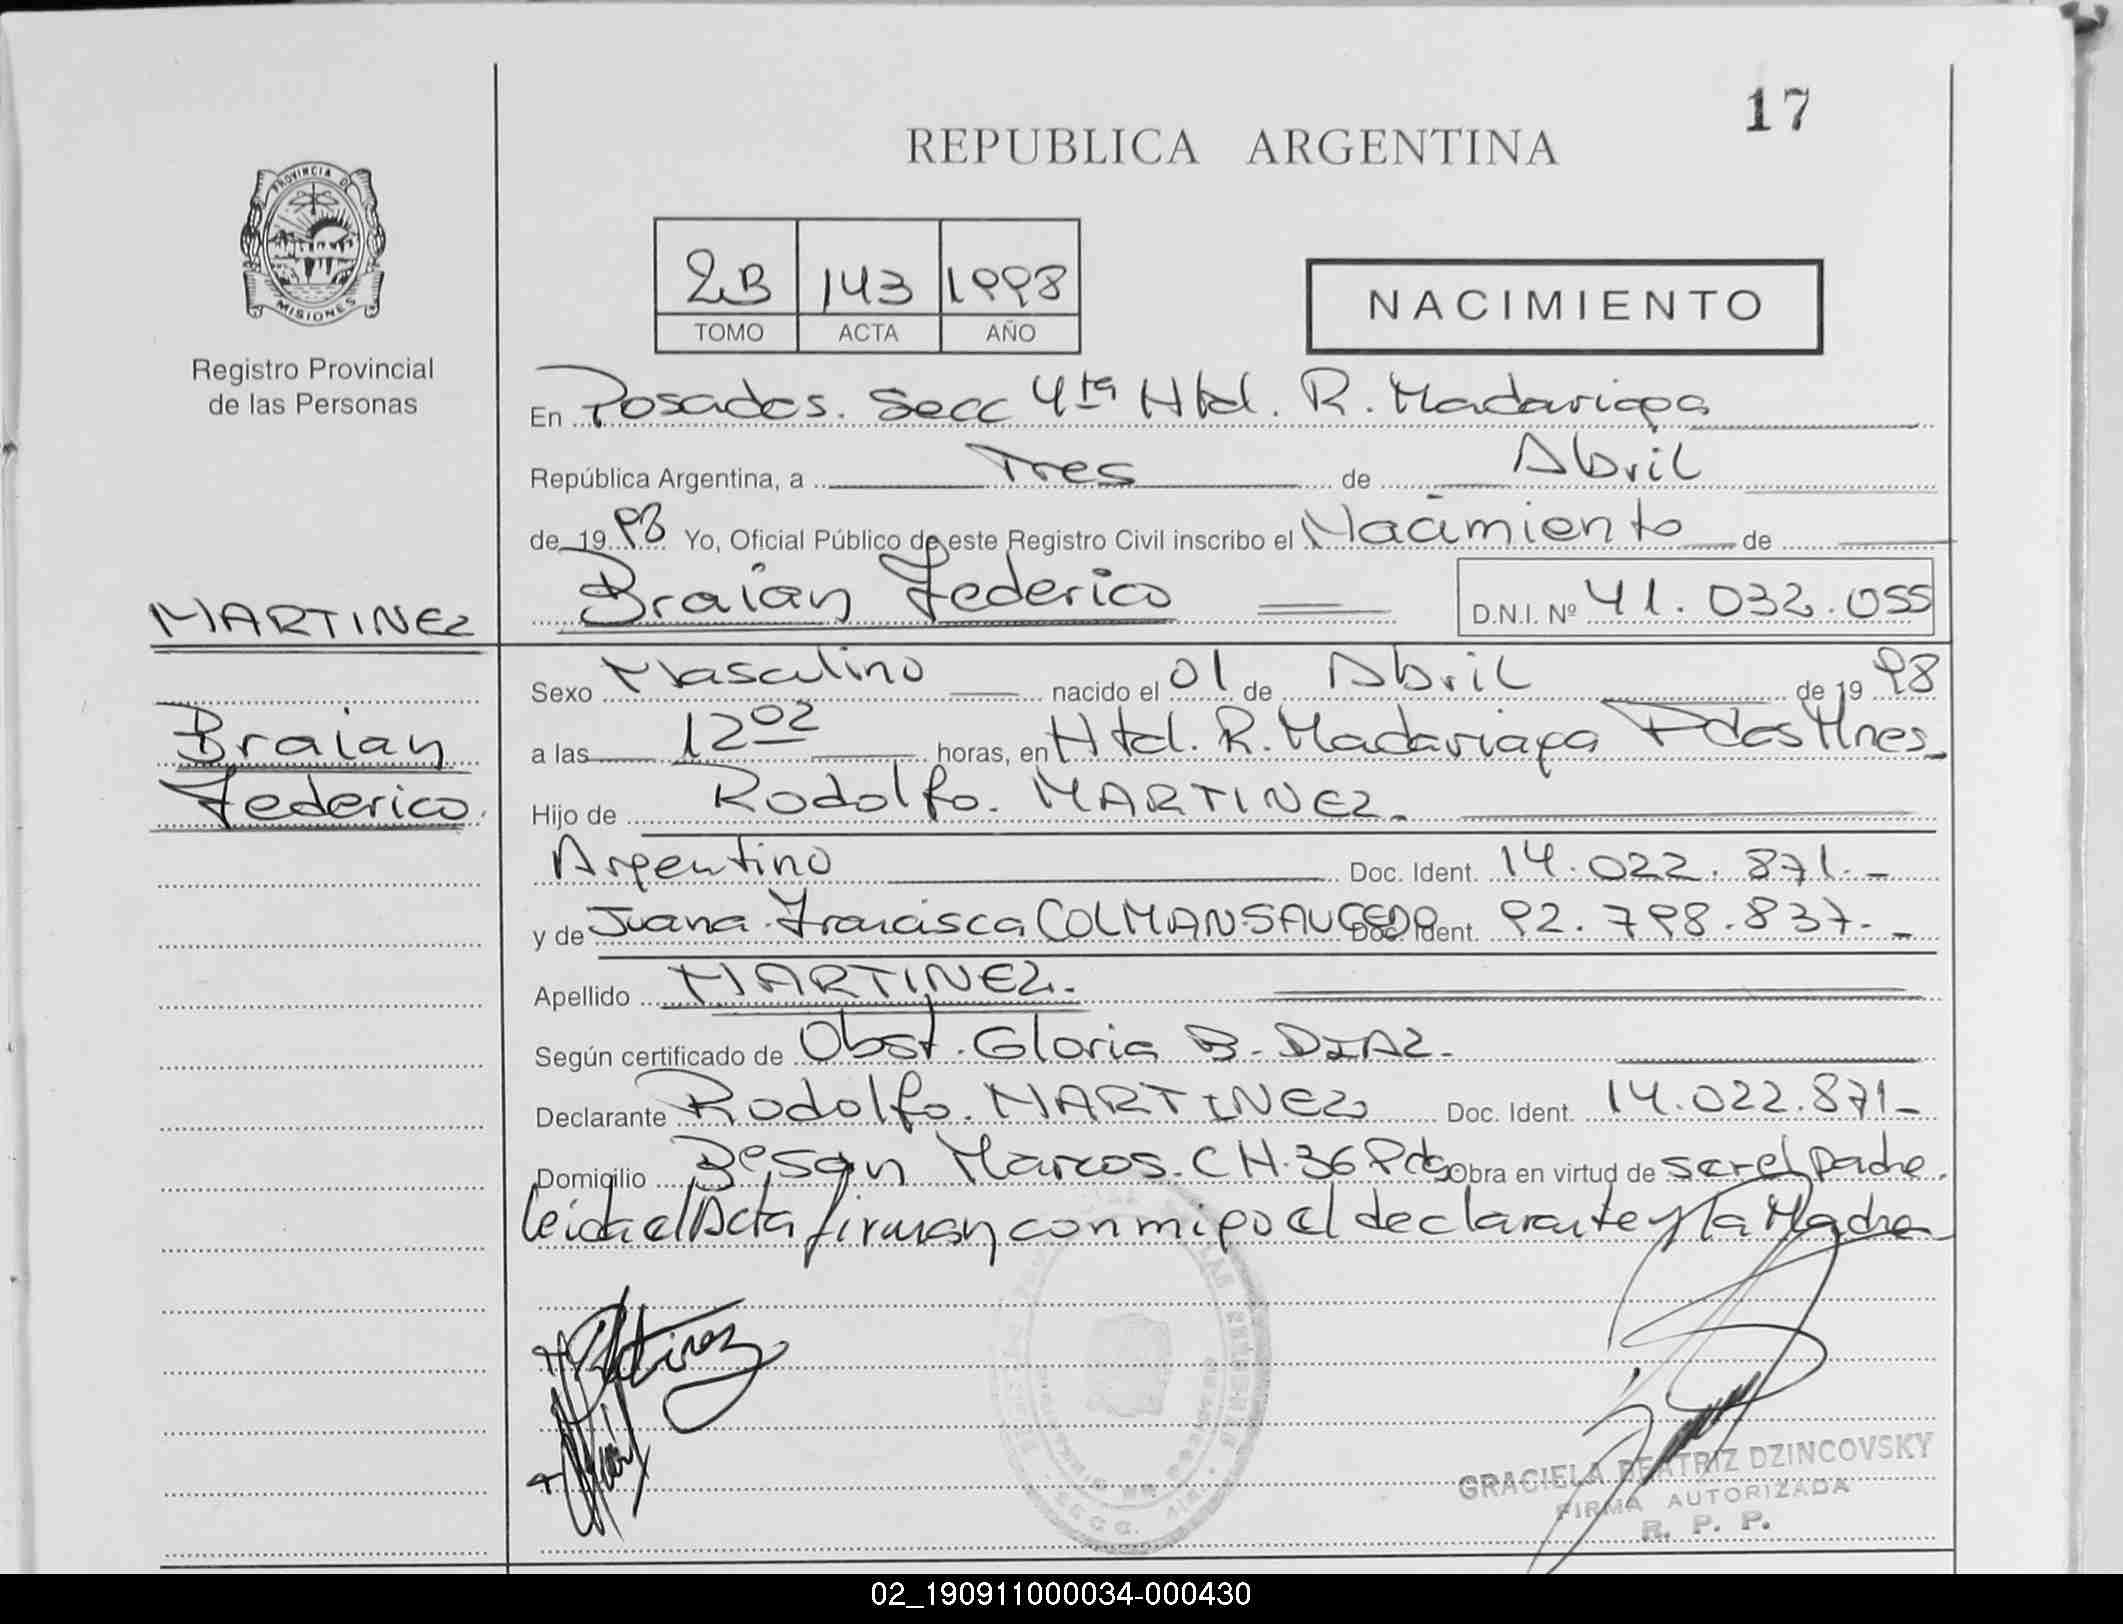 17
REPUBLICA ARGENTINA
PROVINCIA DE
MISIONES
2B 143 1998
TOMO ACTA AÑO
NACIMIENTO
Registro Provincial
de las Personas
En Posadas. Secc 4ta Htal. R. Madariaga
República Argentina, a Tres de Abril
de 1998 Yo, Oficial Público de este Registro Civil inscribo el Nacimiento de
Braian Federico D.N.I. Nº 41.032.055
MARTINEZ
Braian
Federico.
Sexo Masculino nacido el 01 de Abril de 1998
a las 12 02 horas, en Htal. R. Madariaga Pdas Mnes.
Hijo de Rodolfo. MARTINEZ.
Argentino Doc. Ident. 14.022.871.-
y de Juana Francisca COLMAN SAUCEDO Doc. Ident. 92.798.837.-
Apellido MARTINEZ.
Según certificado de Obst. Gloria B. DIAZ.
Declarante Rodolfo. MARTINEZ Doc. Ident. 14.022.871-
Domicilio Bº San Marcos. CH. 36 Pdas Obra en virtud de ser el padre.
leida el Acta firman conmigo el declarante y la Madre
GRACIELA BEATRIZ DZINCOVSKY
FIRMA AUTORIZADA
R. P. P.
02_190911000034-000430